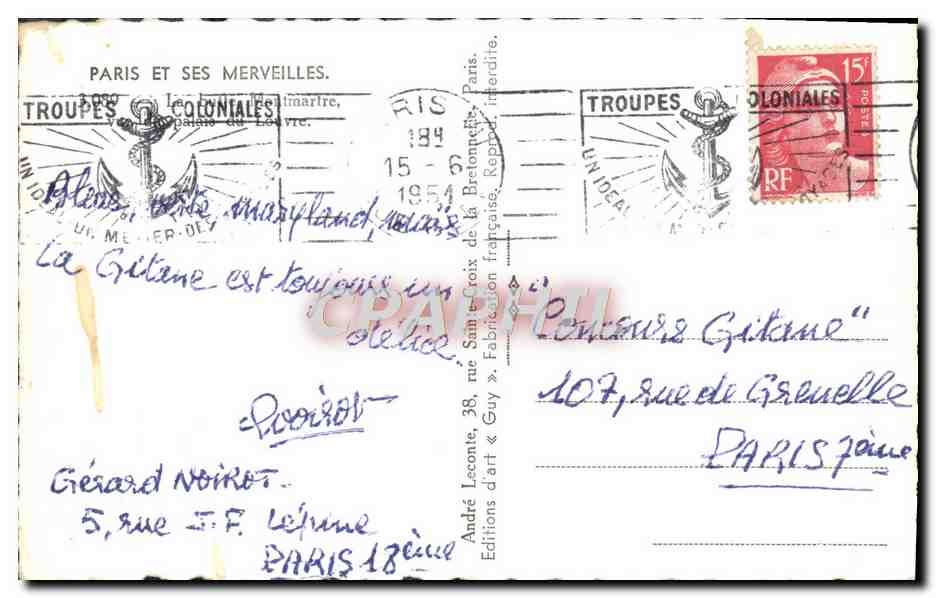 PARIS ET SES MERVEILLES.
3.080
Montmartre,
palais du Louvre.
TROUPES COLONIALES
UN IDEAL
UN METIER-DES
RIS
18H
15 - 6
1951
TROUPES COLONIALES
UN IDEAL
15F
POSTE
RF
maryland, mais
La Gitane est toujours un
délice.
Noirot
Gérard NOIROT.
5, rue J.F. Lépine
PARIS 18ème
André Leconte, 38, rue Sainte-Croix de la Bretonnerie, Paris.
Editions d'art « Guy ». Fabrication française. Reprod. interdite.
CPAPHIL
"Concours Gitane"
107, rue de Grenelle
PARIS 7ème